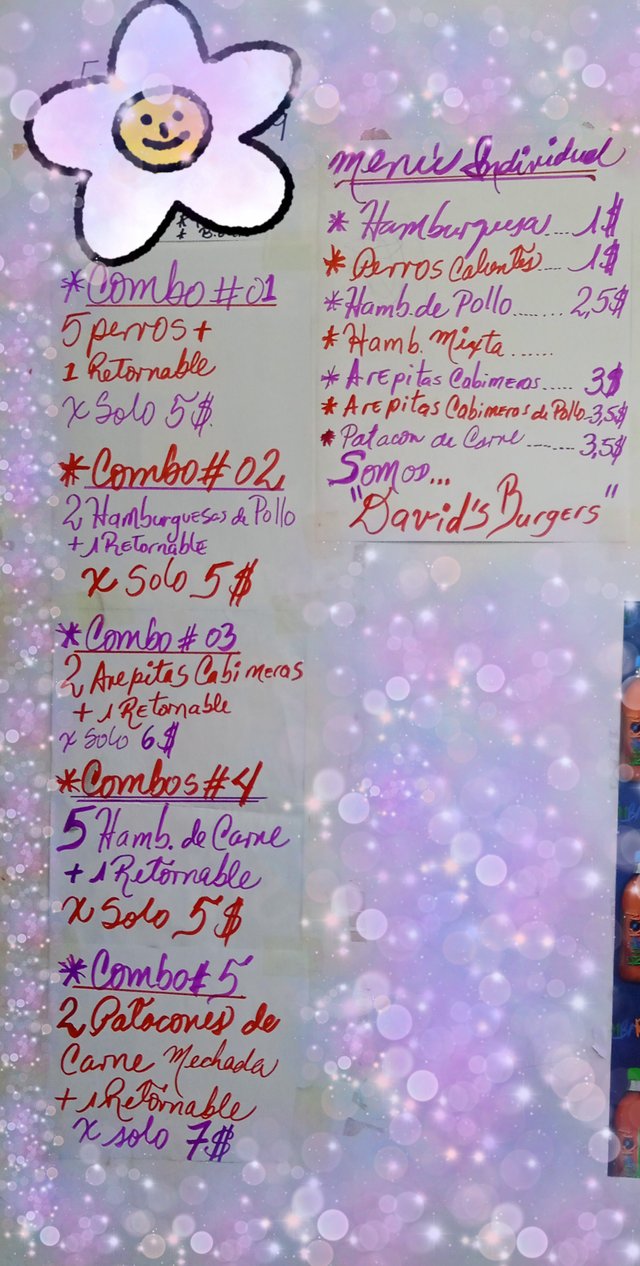 *Combo #01
5 perros +
1 Retornable
x Solo 5$.
*Combo #02
2 Hamburguesas de Pollo
+ 1 Retornable
x Solo 5$
*Combo #03
2 Arepitas Cabimeras
+ 1 Retornable
x Solo 6$
*Combos #4
5 Hamb. de Carne
+ 1 Retornable
x Solo 5$
*Combo #5
2 Patacones de
Carne Mechada
+ 1 Retornable
x solo 7$
menú Individual
*Hamburguesa.... 1$
*Perros Calientes.... 1$
*Hamb. de Pollo ....... 2,5$
*Hamb. Mixta ......
*Arepitas Cabimeras..... 3$
*Arepitas Cabimeras de Pollo-3,5$
*Patacon de Carne ....... 3,5$
Somos...
"David's Burgers"